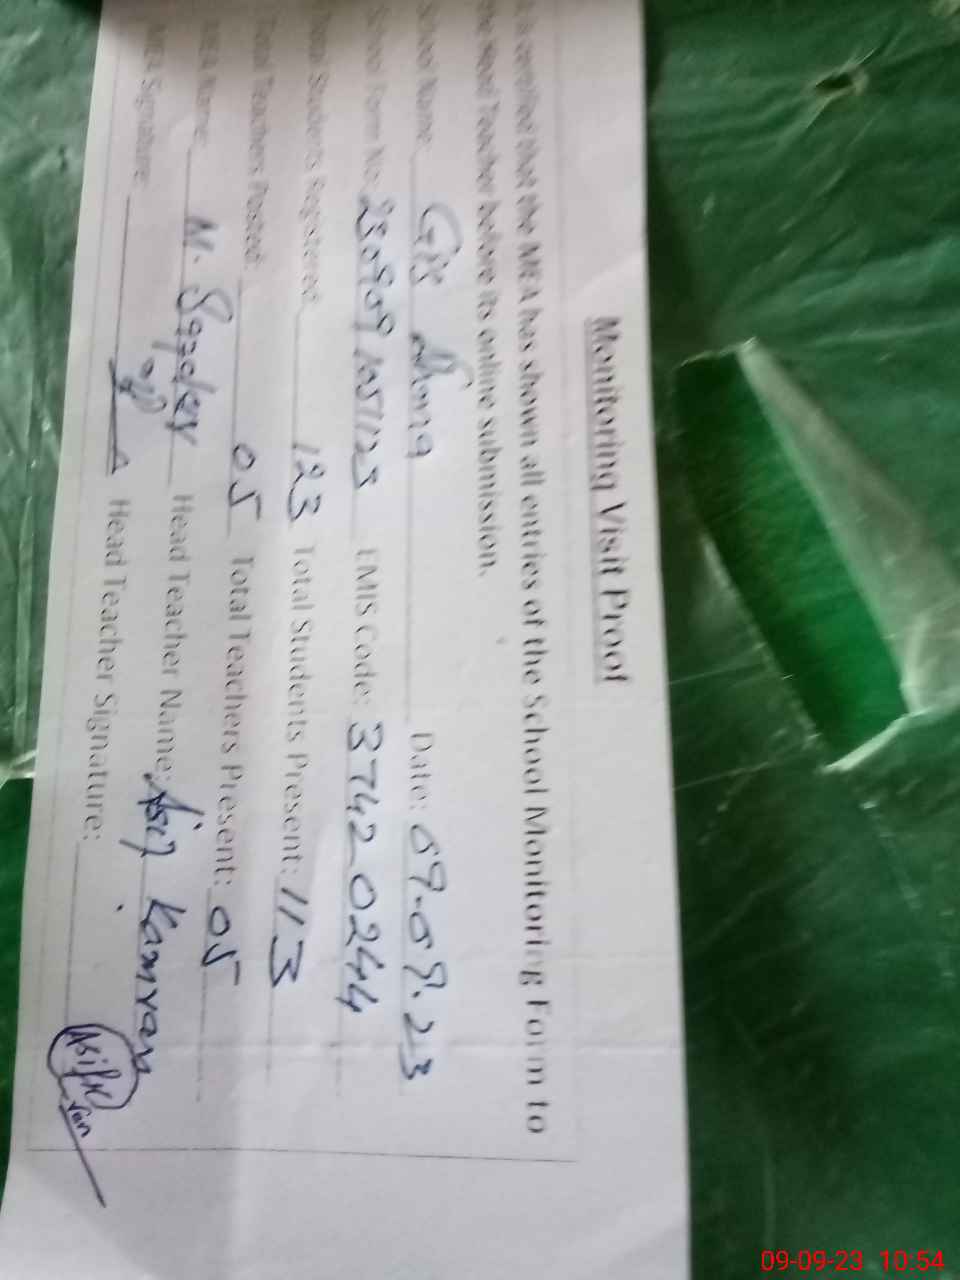 Monitoring Visit Proof
is certified that the MEA has shown all entries of the School Monitoring Form to
the Head Teacher before its online submission.
School Name: Date: 09-09-23
School Form No: EMIS Code: 37420244
Total Students Registered: 123 Total Students Present: 113
Total Teachers Posted: 05 Total Teachers Present: 05
MEA Name: M. Head Teacher Name: Asif Kamran
MEA Signature: Head Teacher Signature:
09-09-23 10:54